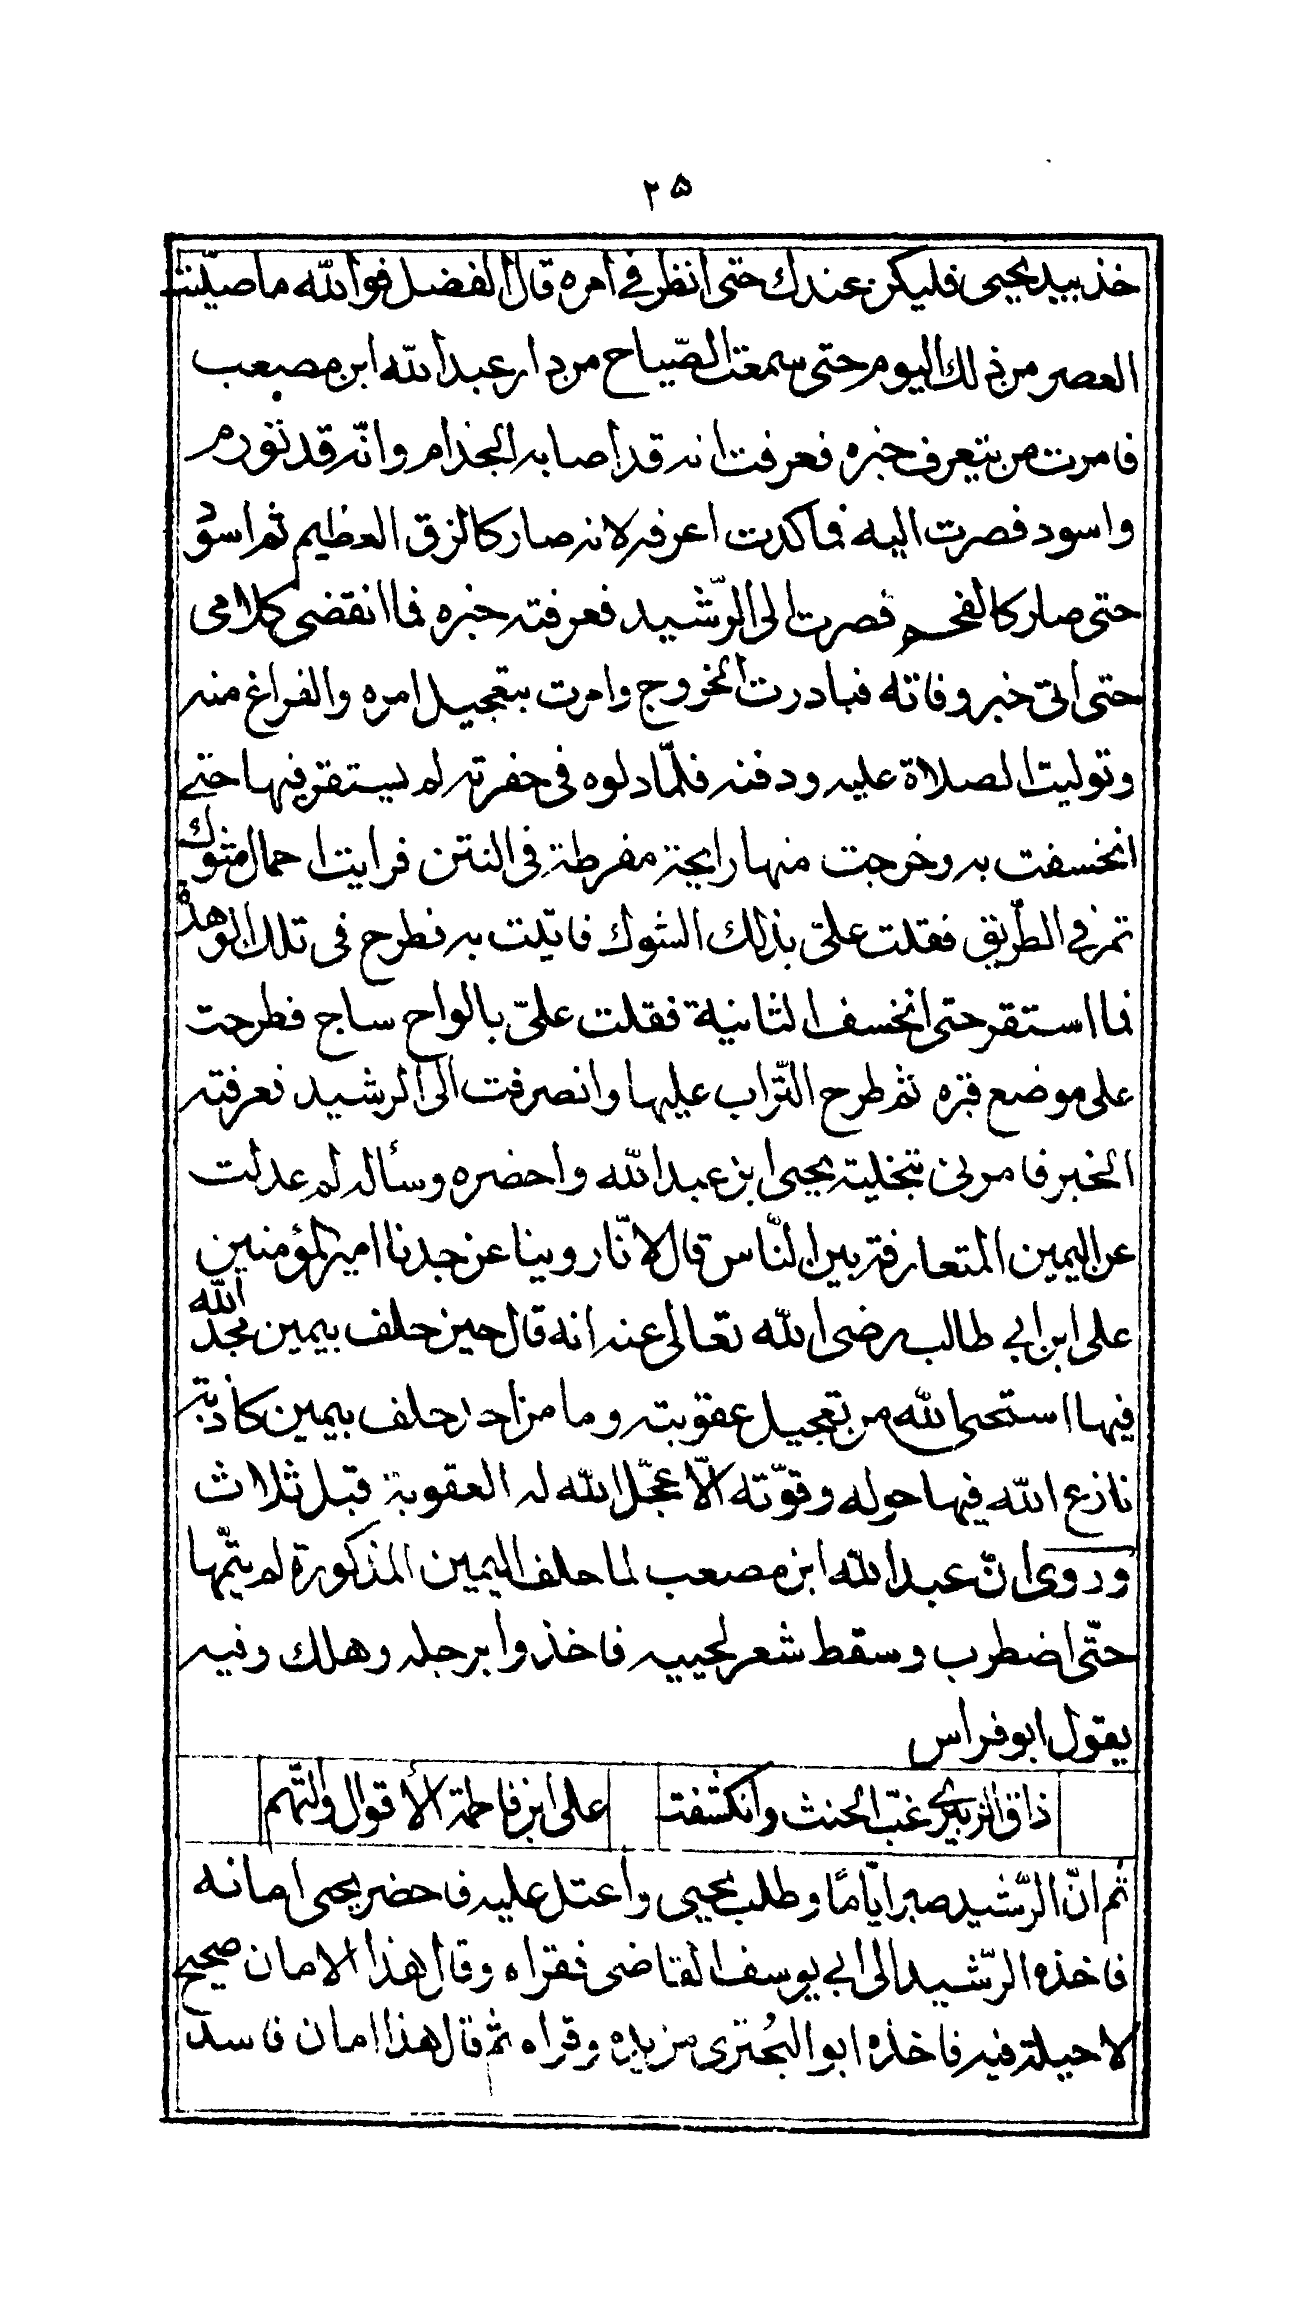 ٢٥
خذ بيد يحيى فليكن عندك حتى انظر في امره قال الفضل فوالله ما صلّيت
العصر من ذلك اليوم حتى سمعت الصّياح من دار عبد الله ابن مصعب
فامرت من يتعرف خبره فعرفت انه قد اصابه الجذام وانّه قد تورم
واسود فصرت اليه فما كدت اعرفه لانه صار كالزق العظيم ثم اسودّ
حتى صار كالفحم فصرت الى الرّشيد فعرفته خبره فما انقضى كلامى
حتى اتى خبر وفاته فبادرت الخروج وامرت بتعجيل امره والفراغ منه
وتوليت الصلاة عليه ودفنه فلمّا دلوه فى حفرته لم يستقر فيها حتى
انخسفت به وخرجت منها رايحة مفرطة في النتن فرايت احمال شوك
تمر في الطّريق فقلت علىّ بذلك الشوك فاتيت به فطرح فى تلك الوهدة
فما استقر حتى انخسف الثانية فقلت علىّ بالواح ساج فطرحت
على موضع قبره ثم طرح التّراب عليها وانصرفت الى الرشيد فعرفته
الخبر فامرنى بتخلية يحيى ابن عبد الله واحضره وسأله لم عدلت
عن اليمين المتعارفة بين النّاس قال لانّا روينا عن جدنا امير المؤمنين
على ابن ابي طالب رضى الله تعالى عنه انه قال من حلف بيمين مجد الله
فيها استحى الله من تعجيل عقوبته وما من احد حلف بيمين كاذبة
نازع الله فيها حوله وقوّته الّا عجّل الله له العقوبة قبل ثلاث
وروى انّ عبد الله ابن مصعب لما حلف اليمين المذكورة لم يتمّها
حتّى اضطرب وسقط شعر لحييه فاخذوا برجله وهلك وفيه
يقول ابو فراس
ذاق الزبيرىّ غبّ الحنث وانكشفت على ابن فاطمة الأقوال والتّهم
ثم انّ الرّشيد صبر ايّامًا وطلب يحيى واعتل عليه فاحضر يحيى امانه
فاخذه الرّشيد الى ابي يوسف القاضى فقراه وقال هذا الامان صحيح
لا حيلة فيه فاخذه ابو البُحترى من يده وقراه ثم قال هذا امان فاسد